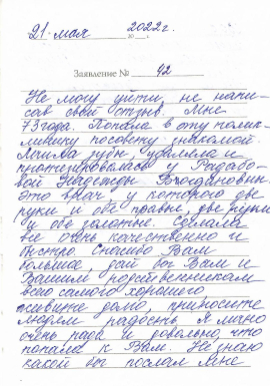 21 мая 2022 г.
Заявление № 42
Не могу уйти, не напи-
сав свой отзыв. Мне
73 года. Попала в эту полик-
линику по совету знакомой.
Лечила зубы, удаляла и
протезировалась у
Надежды Богдановны.
Это врач, у которого две
руки и обе правые, две
и обе золотые. Сделала
всё очень качественно и
быстро. Спасибо Вам
большое, дай Бог Вам и
Вашим родственникам
всего самого хорошего
живите долго, приносите
людям радость. Я лично
очень рада и довольна, что
попала к Вам. Не знаю
какой бы послал мне